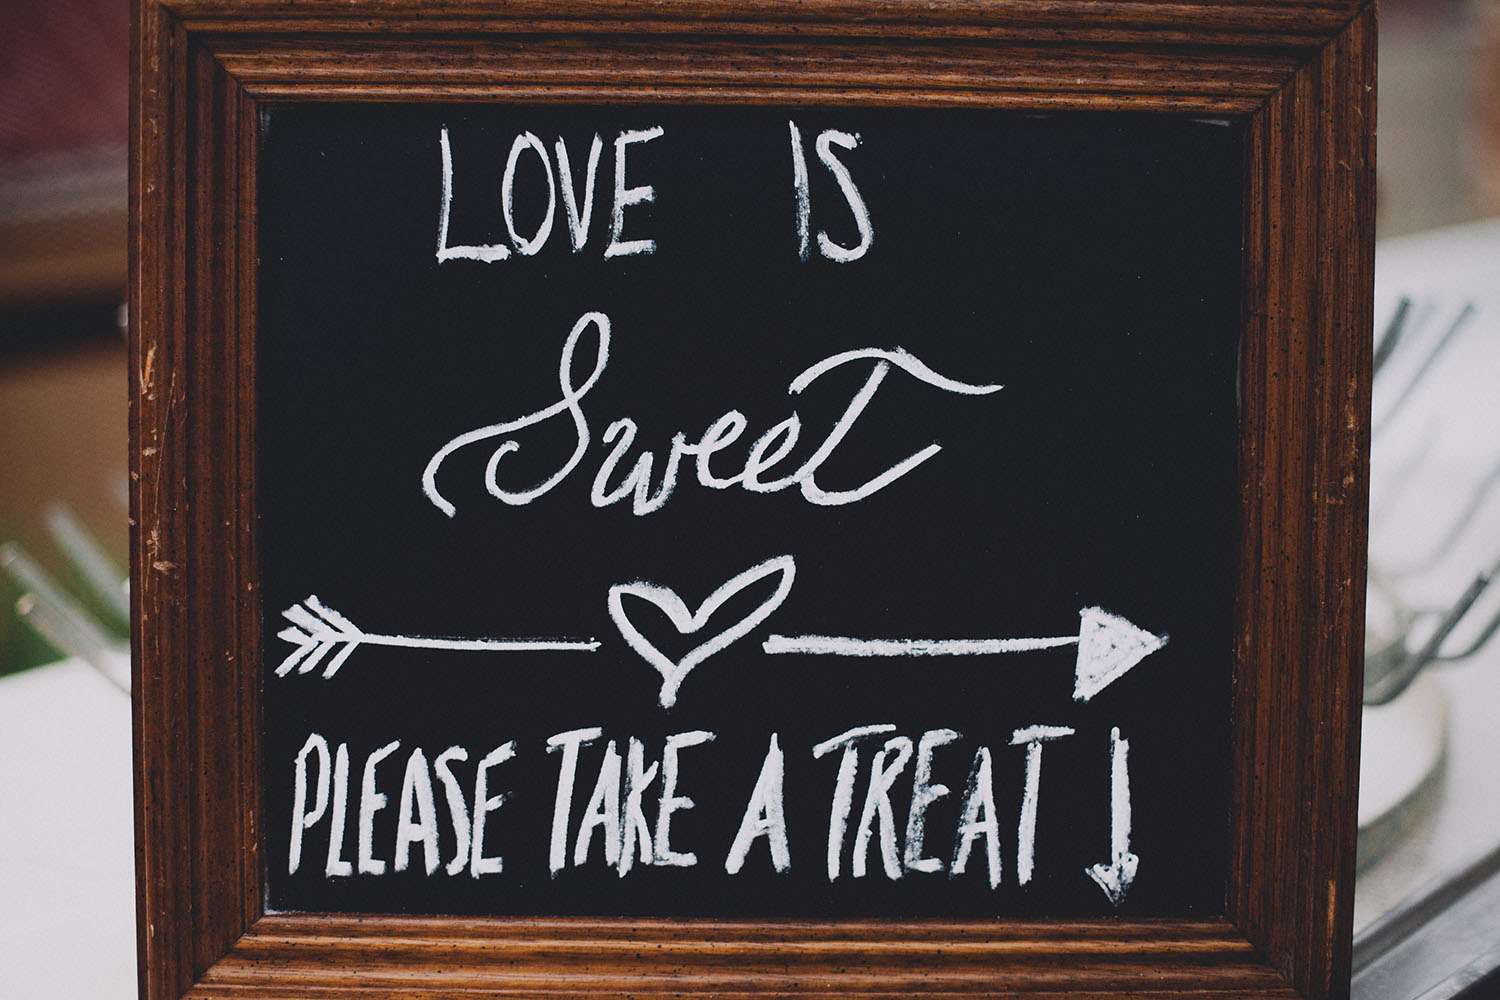 LOVE IS
Sweet
PLEASE TAKE A TREAT